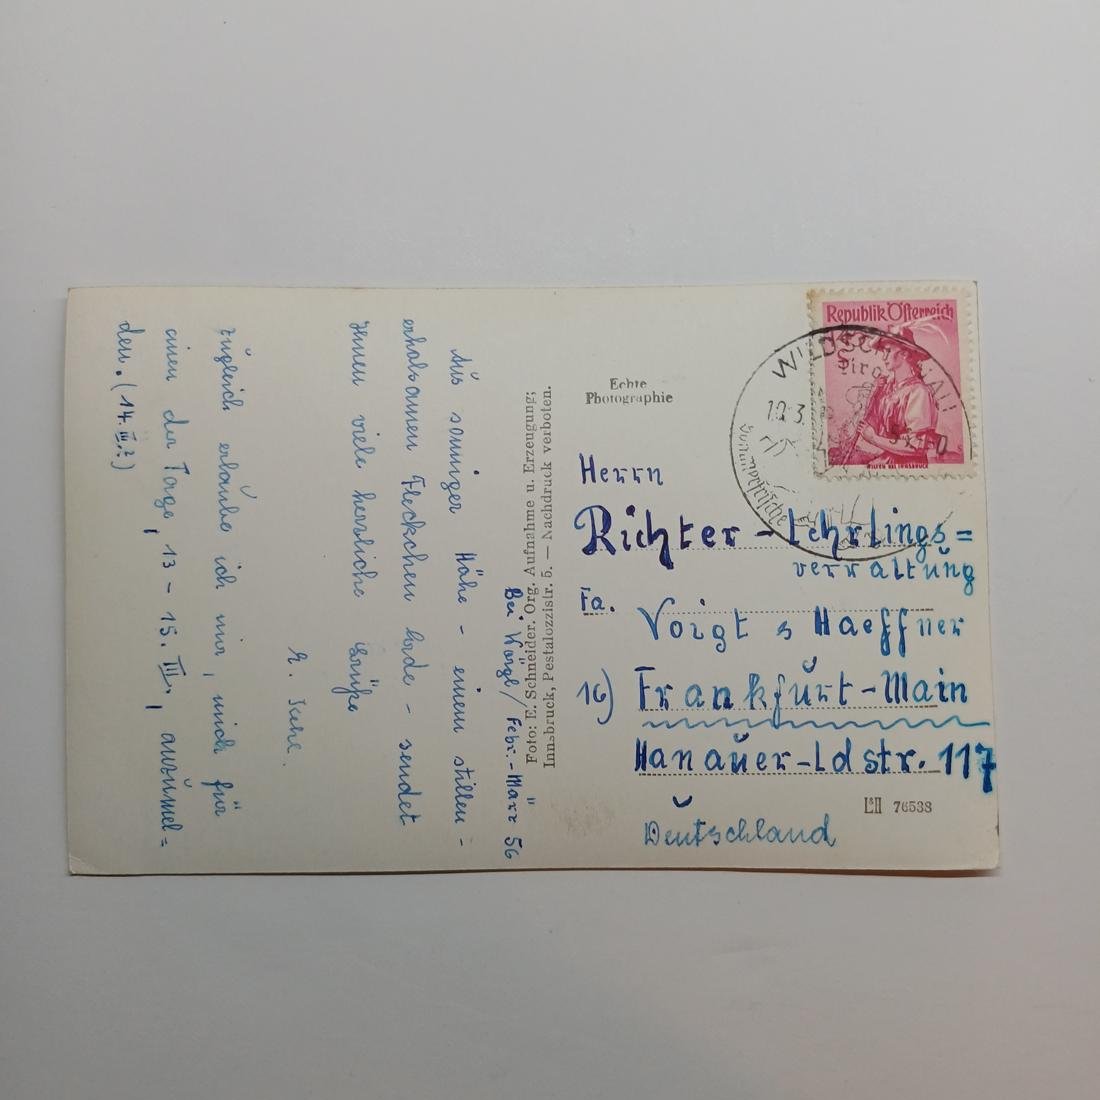 Bei Wörgl / Febr.-März 56
Aus sonniger Höhe - einem stillen -
erholsamen Fleckchen Erde - sendet
Ihnen viele herzliche Grüße
zugleich erlaube ich mir, mich für
einen der Tage, 13 - 15. III., anzumel=
den. (14. III.?)
Foto: E. Schneider. Org. Aufnahme u. Erzeugung;
Innsbruck, Pestalozzistr. 5. — Nachdruck verboten.
Echte
Photographie
Republik Österreich
WILTEN BEI INNSBRUCK
WILDSCHÖNAU
Tirol
Herrn
Richter - Lehrlings=
verwaltung
Fa. Voigt & Haeffner
16) Frankfurt-Main
Hanauer-Ldstr. 117
Deutschland
76538